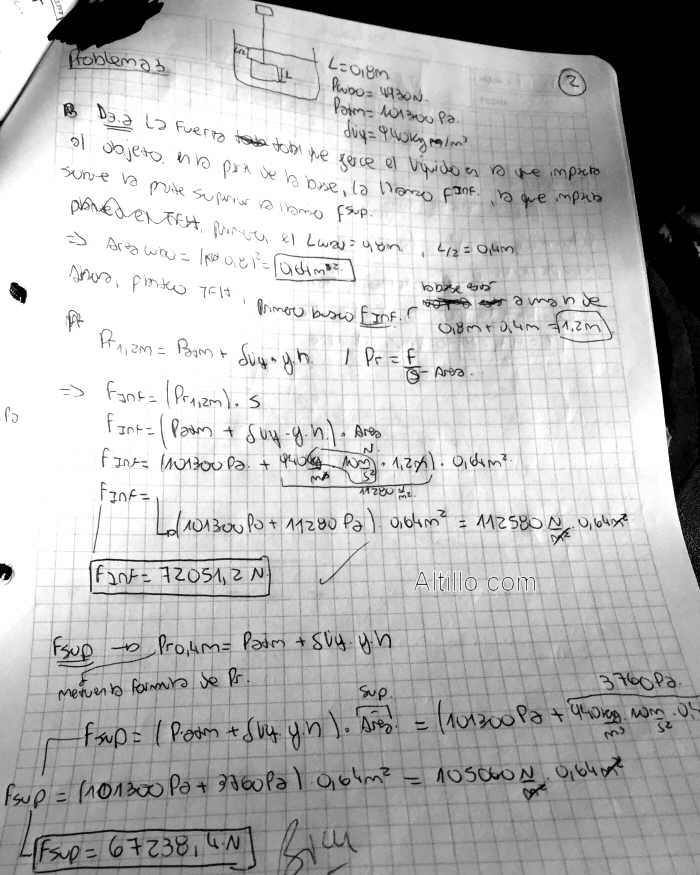 Problema 3
2
L/2
L
L=0,8m
Pcubo = 4430N.
Patm = 101300 Pa.
δliq = 940kg/m³
D3.a La Fuerza total que ejerce el líquido es la que impacta
al objeto en la parte de la base, la llamo F INF. , la que impacta
sobre la parte superior la llamo Fsup.
TFH, primero, el Lcubo = 0,8m , L/2 = 0,4m.
=> Area cubo = ( 0,8)² = 0,64m².
Ahora, planteo TFH, primero busco FINF. la base está a una h de
0,8m + 0,4m = 1,2m
Pr1,2m = Patm + δliq . g . h / Pr = F/S - Area.
=> FINF = (Pr1,2m) . S
FINF = (Patm + δliq . g . h) . Area
FINF = (101300Pa + 940kg/m³ . 10m/s² . 1,2m) . 0,64m².
N
11280 N/m².
FINF =
(101300Pa + 11280Pa) . 0,64m² = 112580 N/m² . 0,64m²
FINF = 72051,2 N
Altillo.com
Fsup -> Pr0,4m = Patm + δliq . g . h
formula de Pr.
Sup. 3760Pa.
Fsup = (Patm + δliq . g . h) . Area. = (101300Pa + 940kg/m³ . 10m/s² . 0,4
Fsup = (101300Pa + 3760Pa) 0,64m² = 105060 N/m² . 0,64m²
Fsup = 67238,4 N